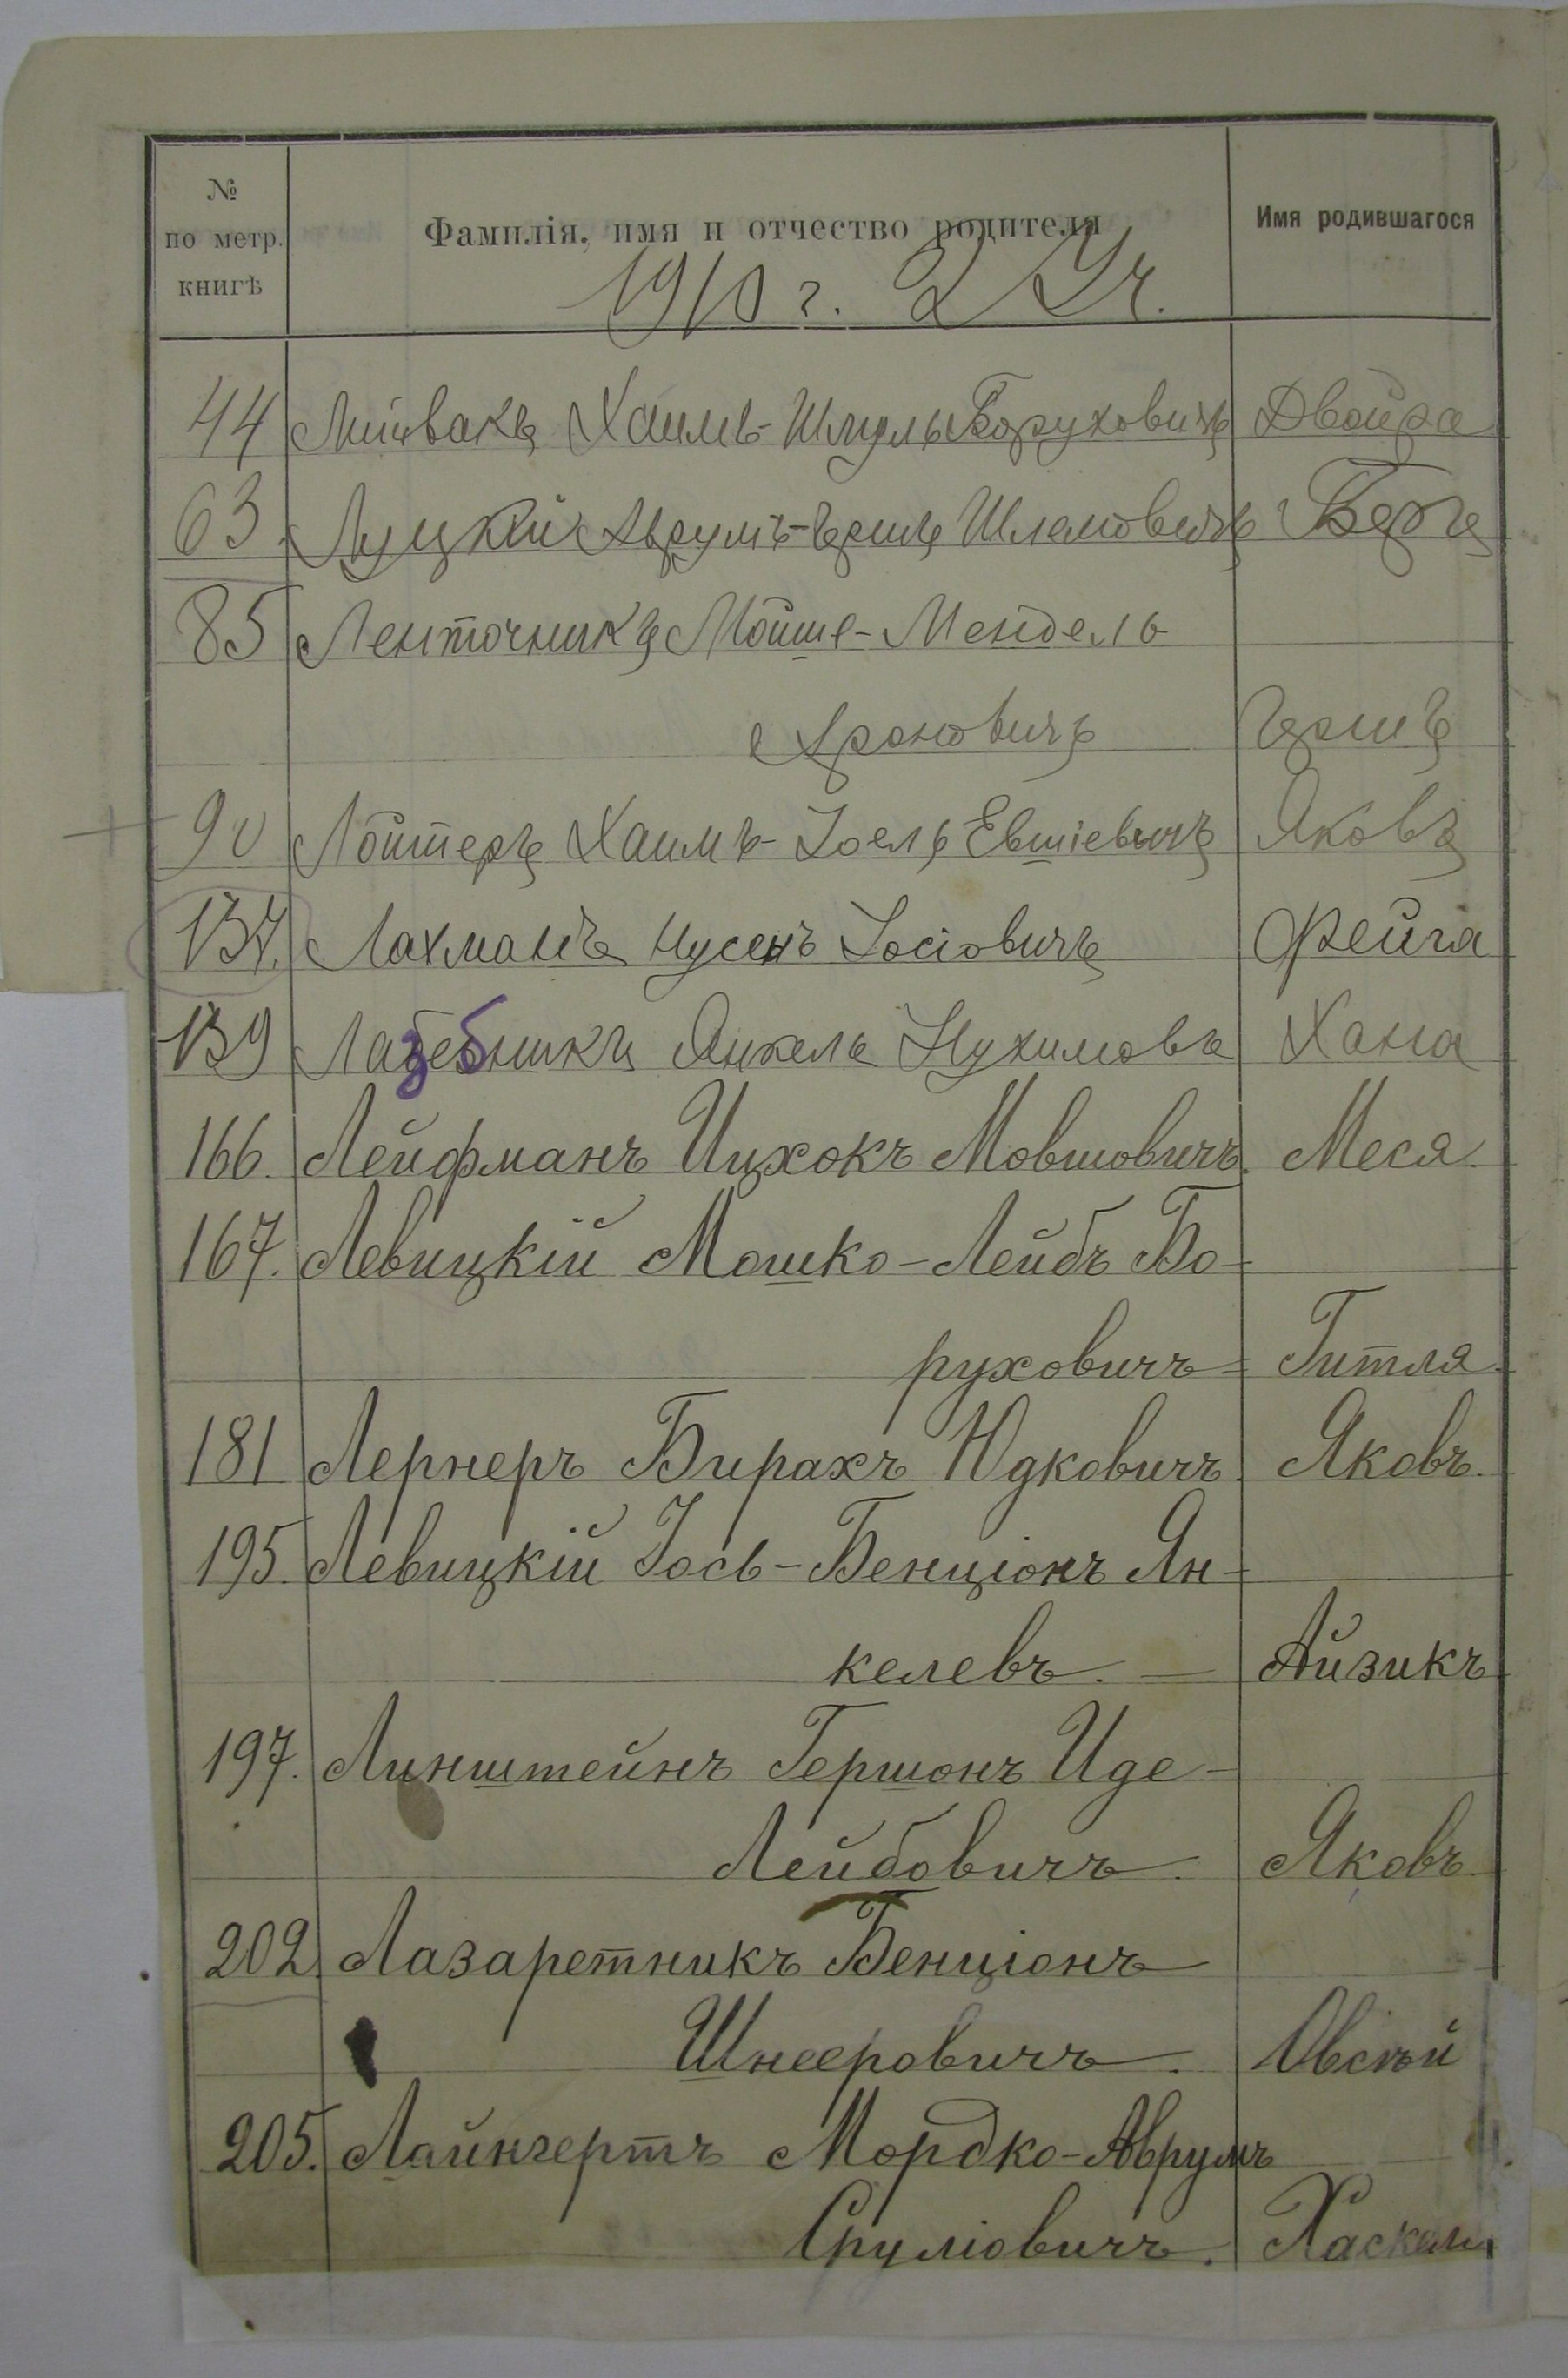 № по метр. книгѣ
Фамилія, имя и отчество родителя
Имя родившагося
1910 г. 2 Уч.
44 Литвакъ Хаимъ-Шмуль Боруховичъ Двойра
63. Луцкій Аврумъ-Гершъ Шлемовичъ Беръ
85 Ленточникъ Мойше-Мендель
Ароновичъ Гершъ
90 Лойтеръ Хаимъ-Іоель Евшіевичъ Яковъ
137. Лахманъ Нусенъ Іосіовичъ Фейга
139 Лазебникъ Янкель Нухимовъ Хана
166. Лейфманъ Ицхокъ Мовшовичъ. Меся.
167. Левицкій Мошко-Лейбъ Бо-
руховичъ Гитля.
181 Лернеръ Бирахъ Юдковичъ. Яковъ.
195. Левицкій Іось-Бенціонъ Ян-
келевъ. — Айзикъ
197. Линштейнъ Гершонъ Иде-
Лейбовичъ. Яковъ
202. Лазаретникъ Бенціонъ
Шнееровичъ. Овсѣй
205. Лайнгертъ Мордко-Аврумъ
Сруліовичъ. Хаскель